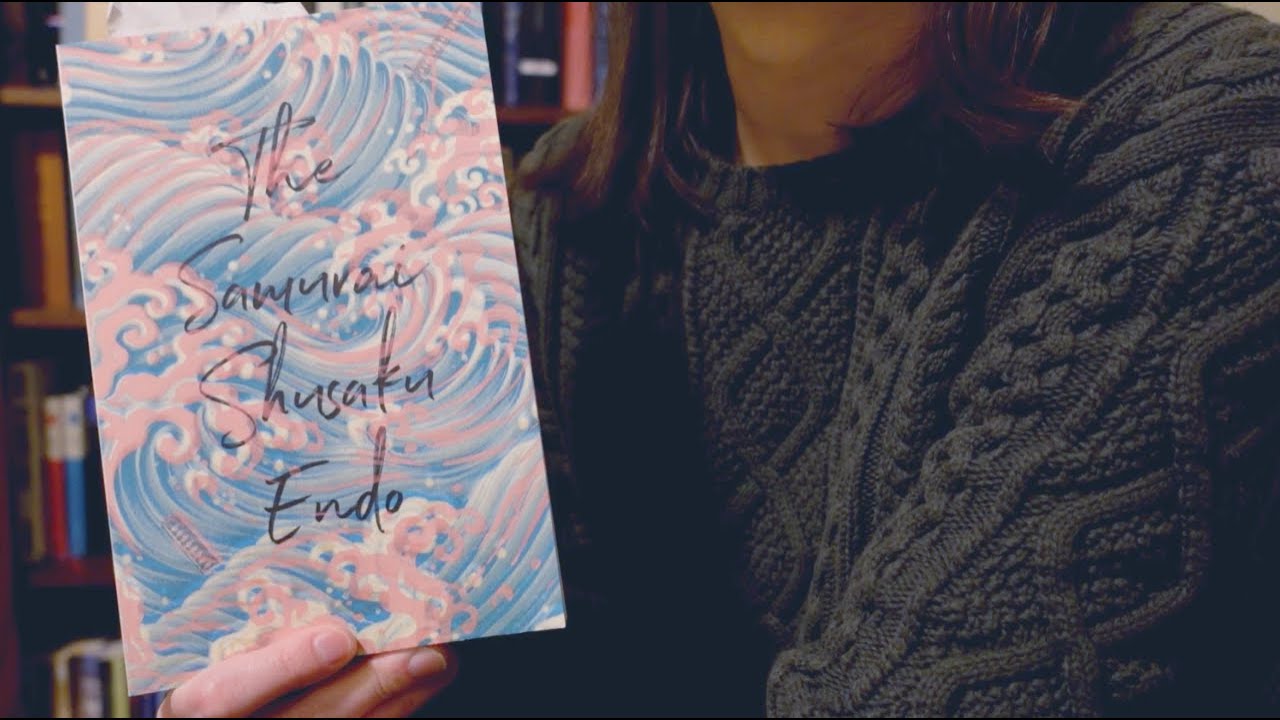 The
Samurai
Shusaku
Endo